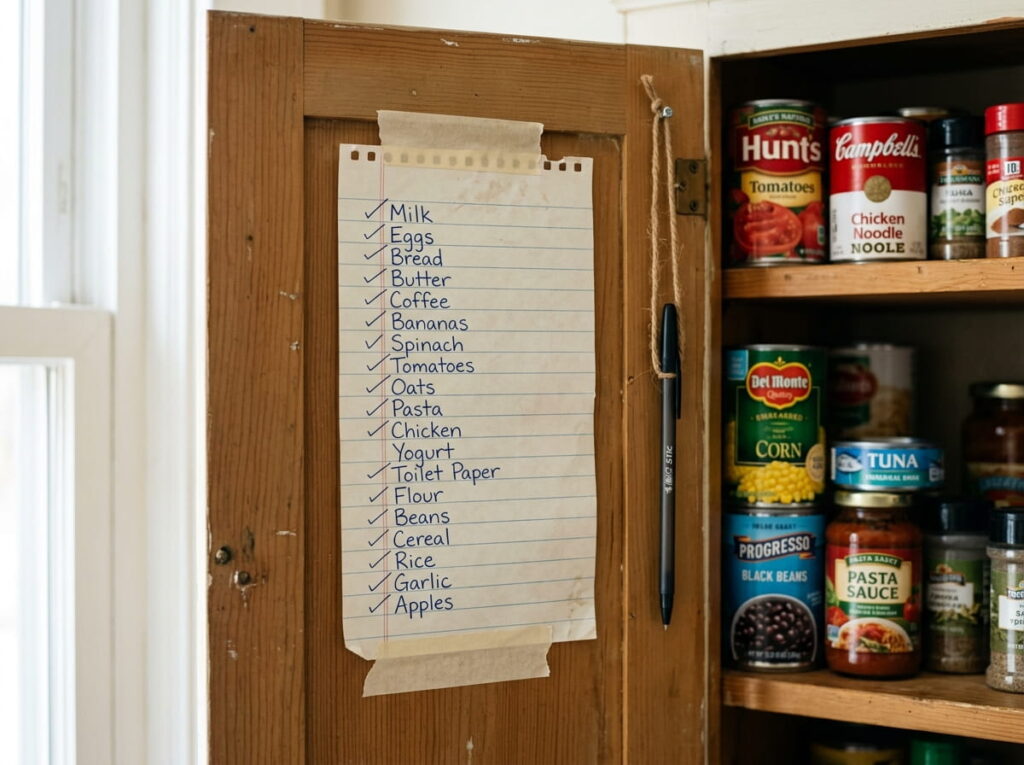 ✓ Milk
✓ Eggs
✓ Bread
✓ Butter
✓ Coffee
✓ Bananas
✓ Spinach
✓ Tomatoes
✓ Oats
✓ Pasta
✓ Chicken
Yogurt
✓ Toilet Paper
✓ Flour
✓ Beans
✓ Cereal
✓ Rice
✓ Garlic
✓ Apples
Hunt's
Tomatoes
Campbell's
Chicken
Noodle
NOOLE
Del Monte
Quality
CORN
TUNA
PROGRESSO
BLACK BEANS
PASTA
SAUCE